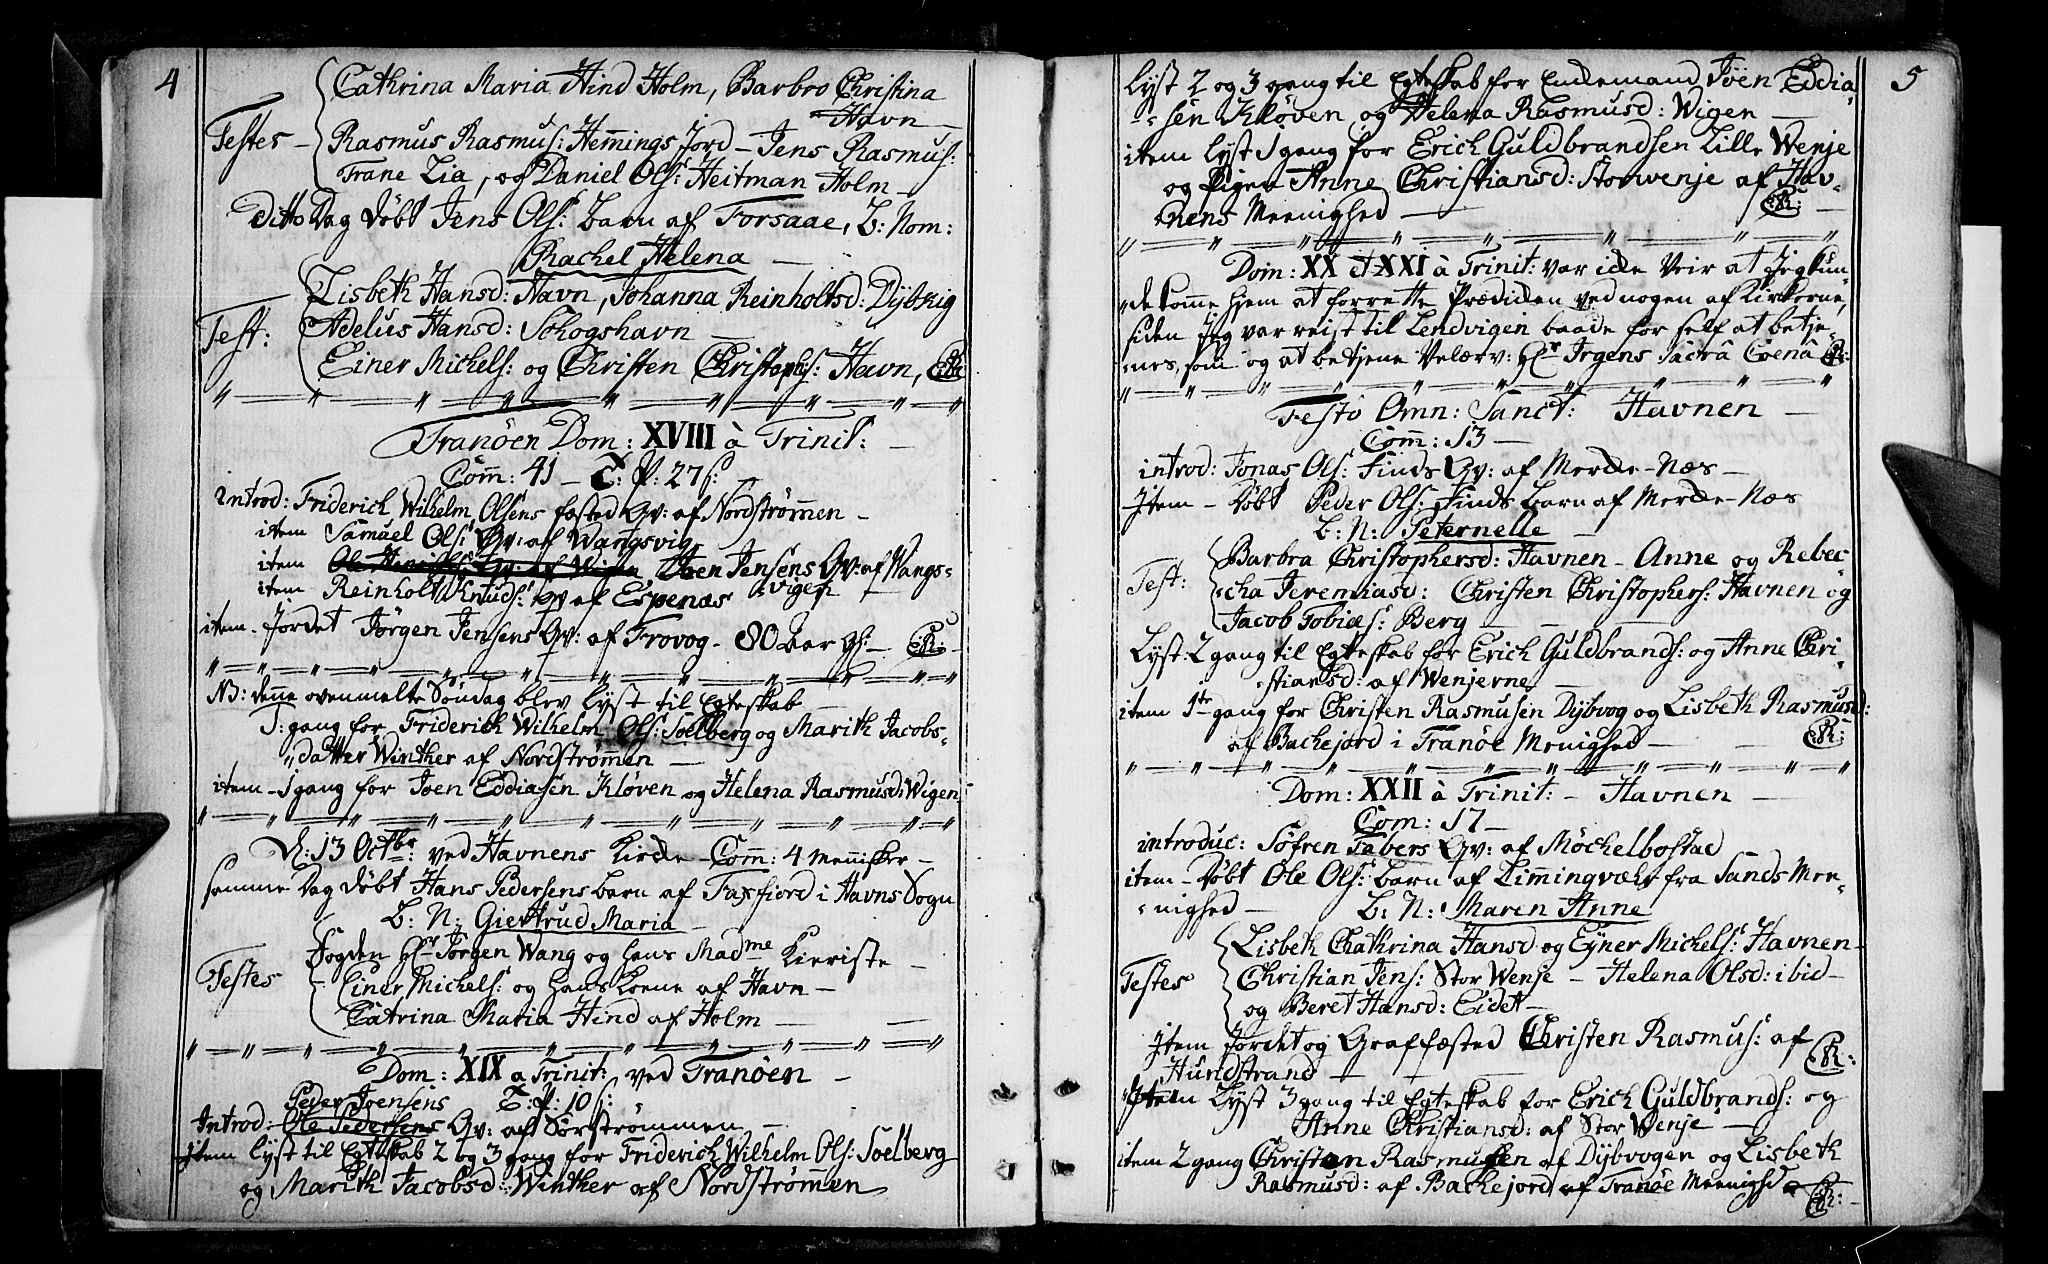 4
Cathrina Maria Hind Holm, Barbro Christina
Havn
Testes - Rasmus Rasmus: Hem̃ings Jord - Jens Rasmus:
Trane Lia, og Daniel Ols: Heitman Holm
Ditto Dag døbt Jens Ols: Barn af Forsaae, B: Nom:
Rachel Helena
Lisbeth Hansd: Havn, Johanna Reinholtsd: Dÿbvig
Test: Adelus Hansd: Schogshavn
Einer Michels: og Christen Christophs: Havn,
Tranöen Dom: XVIII à Trinit:
Com̃: 41 - T: P: 27 s:
introd: Friderich Wilhelm Olsens fæsted Qv: af Nordström̃en
item Samuel Ols: Qv: af Wangsvig
item Joen Jensens Qv: af Wangs-
vigen
item Reinholt Knuds: qv af Espenæs
item - Jordet Jörgen Jensens Qv: af Frovog - 80 Aar gl:
NB: dene ovenmelte Söndag blev lyst til Egteskab
1: gang for Friderich Wilhelm Ols: Soelberg og Marith Jacobs-
datter Winther af Nordström̃en
item - 1 gang for Joen Eddiasen Klöven og Helena Rasmusd: Wigen
D: 13 Octbr: ved Havnens Kirke Com̃: 4 Mennisker
samme Dag døbt Hans Pedersens barn af Faxfiord i Havns Sogn
B: N: Giertrud Maria
Fogden Hr Jörgen Wang og hans Madme Kieriste
Testes Einer Michels: og hans Kone af Havn
Catrina Maria Hind af Holm
Dom: XIX a Trinit: ved Tranöen
Peder Joensens T: P: 10 s:
Introd: Ole Pedersens Qv: af Sörströmmen
Item lyst til Egteskab 2 og 3 gang for Friderich Wilhelm Ols: Soelberg
og Marith Jacobsd: Winther af Nordströmmen
5
Lyst 2 og 3 gang til Egteskab for Enkemand Jöen Eddia-
sen Klöven og Helena Rasmusd: Wigen
item lyst 1 gang for Erich Guldbrandsen Lille Wenje
og Pigen Anne Christiansd: Storwenje af Hav-
nens Meenighed
Dom: XX et XXI à Trinit: var ikke Veir at Jeg kun
de kome hjem at forrette Prædiken ved nogen af Kirkerne,
siden Jeg var reist til Lendvigen baade for self at betje-
nes, som og at betjene Velærv: Hr Irgens Sacrâ Coenâ
Festo Omn: Sanct: Havnen
Com̃: 13
introd: Jonas Ols: Finds Qv: af Merde-Næs
Item - døbt Peder Ols: Finds Barn af Merde-Næs
B: N: Peternelle
Barbra Christophersd: Havnen - Anne og Rebec
Test: cha Jeremiasd: Christen Christophers: Havnen og
Jacob Tobiæs: Berg
Lyst: 2 gang til Egteskab for Erich Guldbrands: og Anne Chri-
stiansd: af Wenjerne
item 1te gang for Christen Rasmusen Dÿbvog og Lisbeth Rasmusd:
af Bachejord i Tranöe Menighed
Dom: XXII à Trinit: - Havnen
Com: 17
introduc: Söfren Fabers Qv: af Möchelbostad
item - Døbt Ole Ols: barn af Lim̃ingvær fra Sands Mee-
nighed B: N: Maren Anne
Lisbeth Chathrina Hansd og Eÿner Michels: Havnen
Testes Christian Jens: Stor Wenje - Helena Olsd: ibid
og Beret Hansd: Eidet
Item Jordet og Graffæsted Christen Rasmus: af
Hundstrand
Item Lyst 3 gang til Egteskab for Erich Guldbrands: og
Anne Christiansd: af Stor Wenje
item 2 gang Christen Rasmusen af Dÿbvogen og Lisbeth
Rasmusd: af Bachejord af Tranöe Meenighd